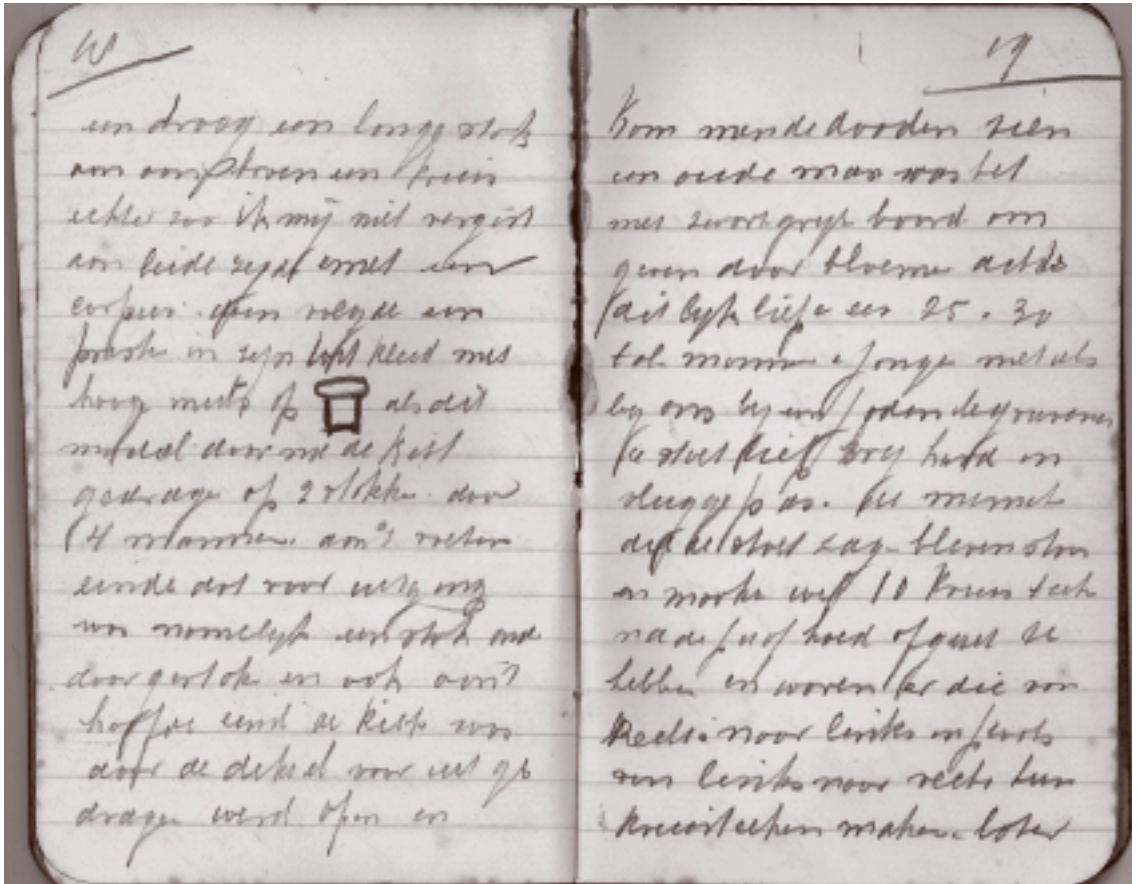 19
een draag een lange stok
aan een kruis
echter zoo ik mij niet vergist
aan beide zijde met een
corpus. een volgde een
in zijn kleed met
hooge muts op als dit
model daarna de kist
gedrage op 2 stokke door
4 mannen. aan't voeten
einde dat voor uitging
was namelijk een stok onder
door gestoke en ook aan't
hoofde eind de kist was
door de deksel voor uit ge
dragen werd open en
kom men de dooden zien
een oude man was het
met zwart grijze baard om
geven door bloeme achter
dit lijk liepe een 25. 30
tal manne jonge met als
bij ons bij een joden begravenis
de stoet liep erg hard en
vlugge pas. de mensch
die de stoet zag bleven staan
en maakte wel 10 kruis teek
na de hoed afgezet te
hebbe en waren er die van
Rechts naar links in plaats
van links naar rechts hun
kruisteeken maken. later